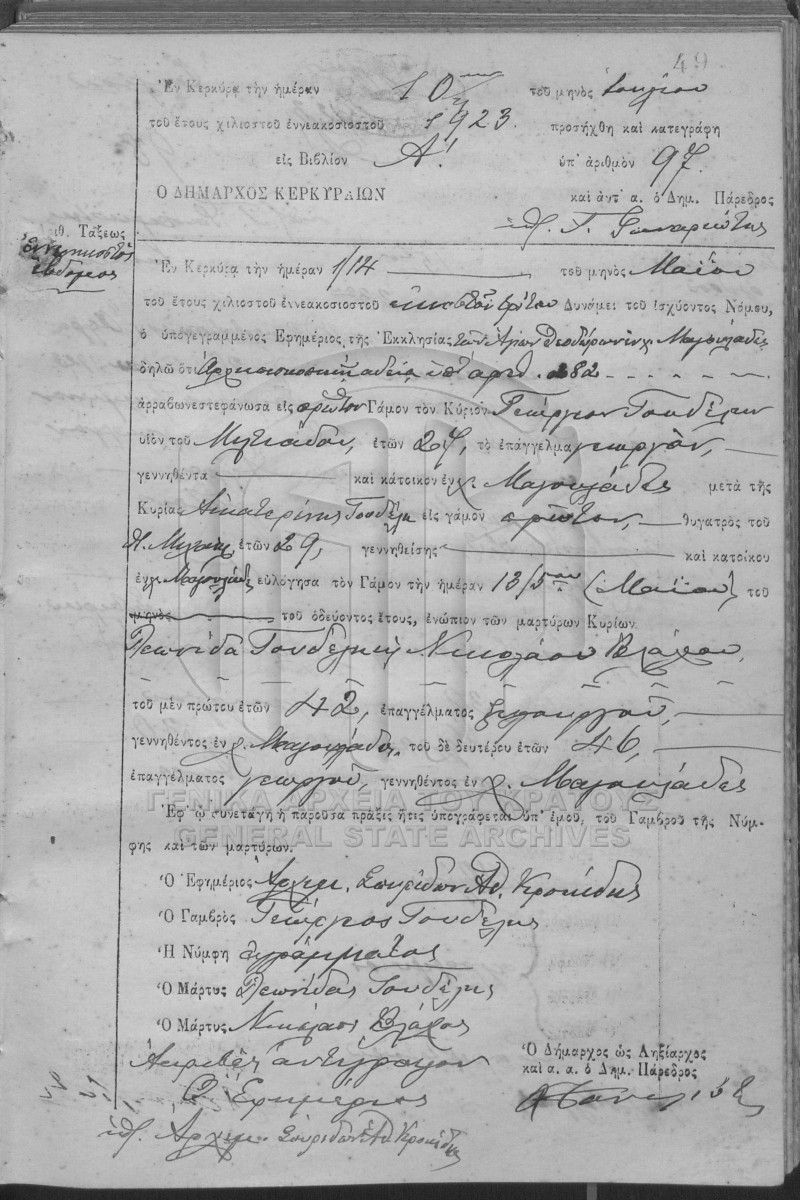 49
Ἐν Κερκύρᾳ τὴν ἡμέραν 10ην τοῦ μηνὸς Ἰουλίου
τοῦ ἔτους χιλιοστοῦ ἐννεακοσιοστοῦ 1923. προσήχθη καὶ κατεγράφη
εἰς Βιβλίον Α! ὑπ' ἀριθμὸν 97
Ο ΔΗΜΑΡΧΟΣ ΚΕΡΚΥΡΑΙΩΝ καὶ ἀντ' α. ὁ Δημ. Πάρεδρος
Γ.
ιθ. Τάξεως
ἐννενηκοστὸς
ἕβδομος
Ἐν Κερκύρᾳ τὴν ἡμέραν 1/14 τοῦ μηνὸς Μαΐου
τοῦ ἔτους χιλιοστοῦ ἐννεακοσιοστοῦ εἰκοστοῦ τρίτου Δυνάμει τοῦ ἰσχύοντος Νόμου,
ὁ ὑπογεγραμμένος Ἐφημέριος τῆς Ἐκκλησίας τῶν Ἁγίων Θεοδώρων Μαγουλάδες
δηλῶ ὅτι Ἀρχιεπισκοπικῇ ἀδείᾳ ὑπ' ἀριθ. 282
ἀρραβωνεστεφάνωσα εἰς πρῶτον Γάμον τὸν Κύριον Γεώργιον Τουδέλην
υἱὸν τοῦ Μιλτιάδου, ἐτῶν 27, τὸ ἐπάγγελμα γεωργὸν,
γεννηθέντα καὶ κάτοικον ἐν χ. Μαγουλάδες μετὰ τῆς
Κυρίας Αἰκατερίνης Τουδέλη εἰς γάμον πρῶτον, θυγατρὸς τοῦ
ἐτῶν 29, γεννηθείσης καὶ κατοίκου
ἐν χ. Μαγουλάδες εὐλόγησα τὸν Γάμον τὴν ἡμέραν 13/5 (Μαΐου) τοῦ
μηνὸς τοῦ ὁδεύοντος ἔτους, ἐνώπιον τῶν μαρτύρων Κυρίων
Λεωνίδα Τουδέλη κ Νικολάου Βλάχου,
τοῦ μὲν πρώτου ἐτῶν 42, ἐπαγγέλματος ξυλουργοῦ,
γεννηθέντος ἐν χ. Μαγουλάδες, τοῦ δὲ δευτέρου ἐτῶν 46,
ἐπαγγέλματος γεωργοῦ, γεννηθέντος ἐν χ. Μαγουλάδες
ΓΕΝΙΚΑ ΑΡΧΕΙΑ ΤΟΥ ΚΡΑΤΟΥΣ
Ἐφ' ᾧ συνετάγη ἡ παροῦσα πρᾶξις ἥτις ὑπογράφεται ὑπ' ἐμοῦ, τοῦ Γαμβροῦ τῆς Νύμ-
GENERAL STATE ARCHIVES
φης καὶ τῶν μαρτύρων.
Ὁ Ἐφημέριος Ἀρχιμ. Σπυρίδων Ἀθ. Κροκίδης
Ὁ Γαμβρὸς Γεώργιος Τουδέλης
Ἡ Νύμφη ἀγράμματος
Ὁ Μάρτυς Λεωνίδας Τουδέλης
Ὁ Μάρτυς Νικόλαος Βλάχος
Ἀκριβὲς ἀντίγραφον
Ὁ Ἐφημέριος
Ὁ Δήμαρχος ὡς Ληξίαρχος
καὶ α. α. ὁ Δημ. Πάρεδρος
Ἀρχιμ. Σπυρίδων Ἀθ. Κροκίδης